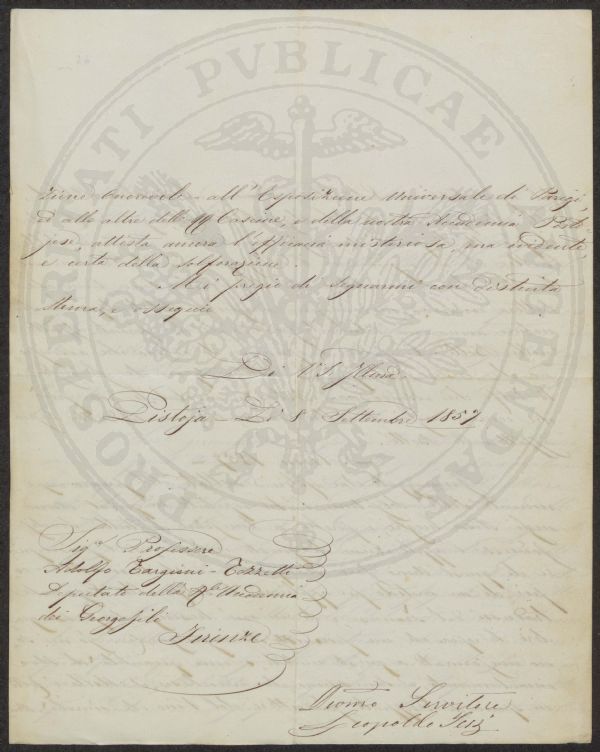 PROSPERITATI PVBLICAE AVGENDAE
zione Onorevole all'Esposizione Universale di Parigi,
ed alle altre delle RR Cascine, e della nostra Accademia
attesta ancora l'efficacia misteriosa, ma evidente,
e certa della solforazione.
Mi pregio di segnarmi con distinta
stima, e ossequio
Di V. S. Illma
Pistoja - Li 8 Settembre 1857.
Sigr Professore
Adolfo Targioni-Tozzetti
Deputato della Rle Accademia
dei Georgofili
Firenze
Devmo Servitore
Leopoldo